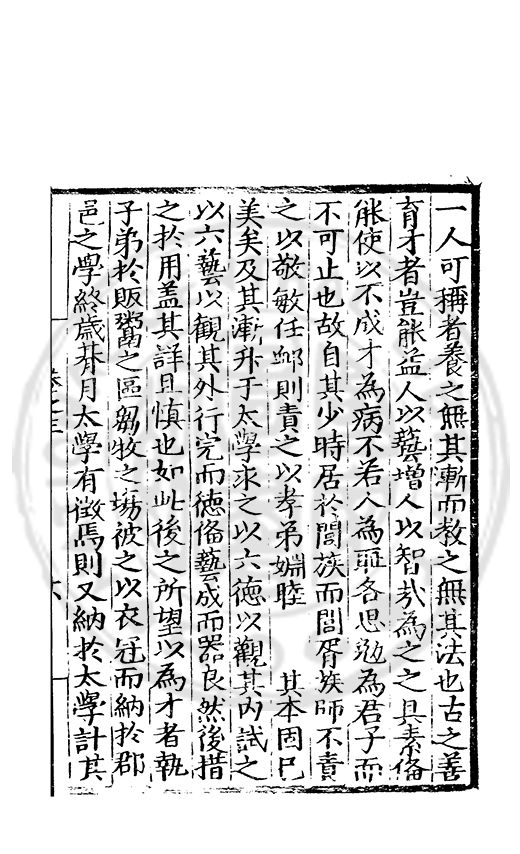 一人可稱者養之無其漸而教之無其法也古之善
育才者豈能益人以藝增人以智哉為之之具素俻
能使以不成才為病不若人為耻各思勉為君子而
不可止也故自其少時居於閭族而閭胥族師不責
之以敬敏任䘏則責之以孝弟婣睦 其本固已
美矣及其漸升于太學求之以六德以觀其內試之
以六藝以觀其外行完而德俻藝成而器良然後措
之於用盖其詳且慎也如此後之所望以為才者執
子弟於販鬻之區芻牧之塲被之以衣冠而納於郡
邑之學終歲朞月太學有徵焉則又納於太學計其
卷之三
六